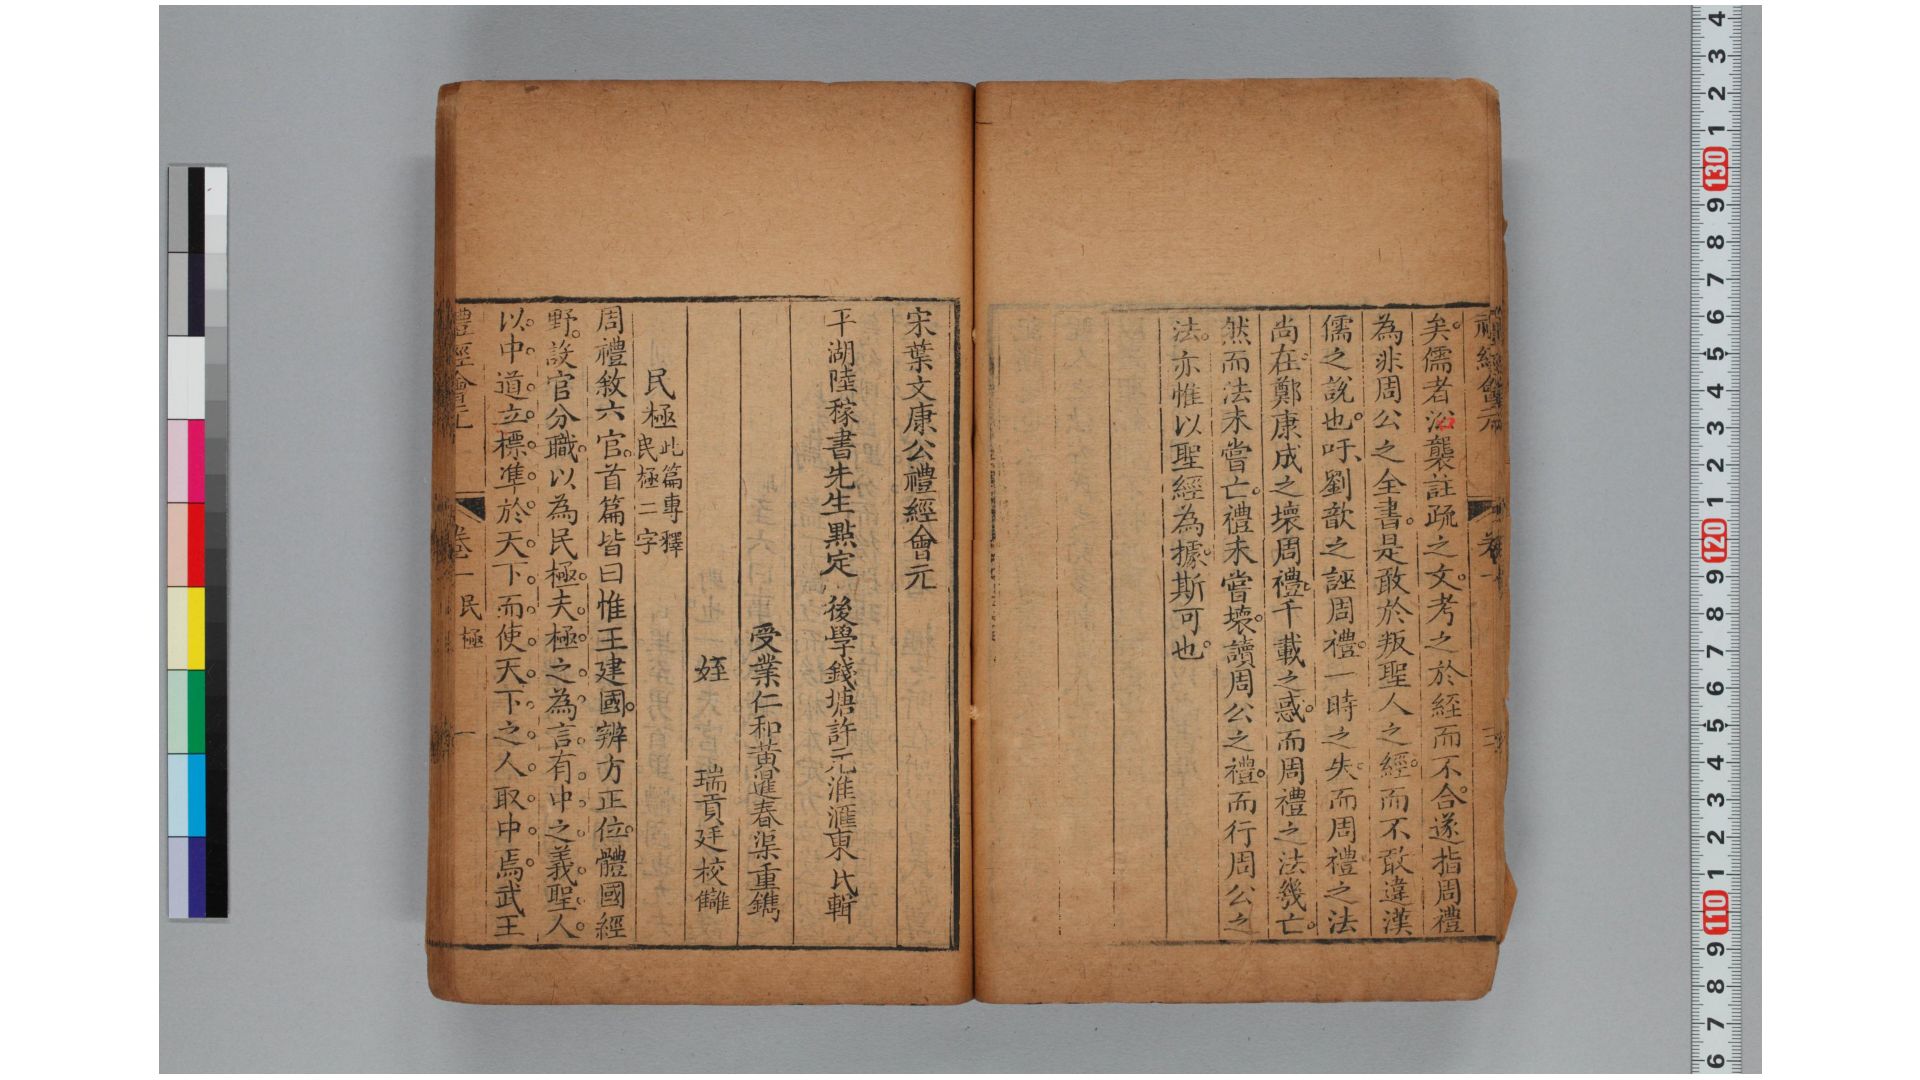 禮經會元 卷一
矣儒者沿襲註疏之文考之於經而不合遂指周禮
為非周公之全書是敢於叛聖人之經而不敢違漢
儒之說也吁劉歆之誣周禮一時之失而周禮之法
尚在鄭康成之壞周禮千載之惑而周禮之法幾亡
然而法未嘗亡禮未嘗壞讀周公之禮而行周公之
法亦惟以聖經為據斯可也
宋葉文康公禮經會元
平湖陸稼書先生點定 後學錢塘許元淮滙東氏輯
受業仁和黃暹春渠重鐫
姪 瑞貢廷校讎
民極此篇專釋民極二字
周禮敘六官首篇皆曰惟王建國辨方正位體國經
野設官分職以為民極夫極之為言有中之義聖人
以中道立標準於天下而使天下之人取中焉武王
禮經會元 卷一 民極 一
4
3
2
1
130
9
8
7
6
5
4
3
2
1
120
9
8
7
6
5
4
3
2
1
110
9
8
7
6